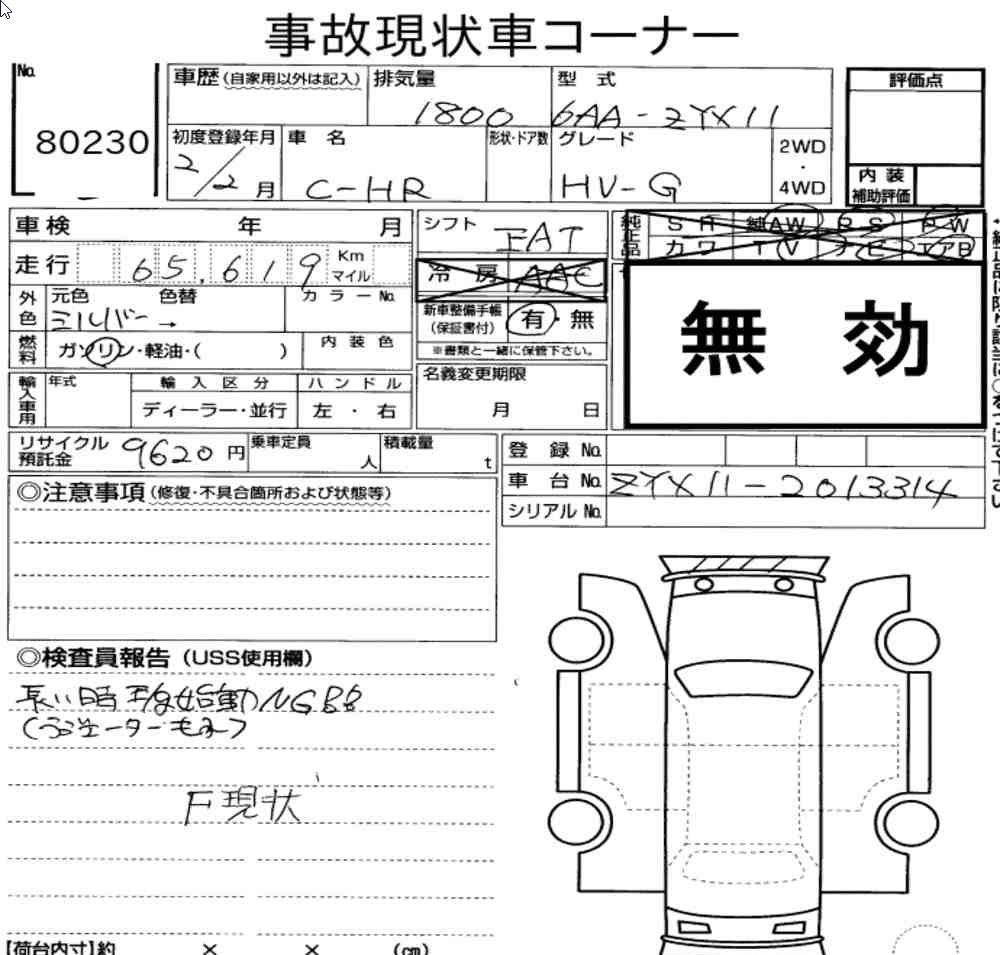 事故現状車コーナー
No.
80230
車歴（自家用以外は記入） 排気量 型 式
1800 6AA-ZYX11
初度登録年月 車 名 形状・ドア数 グレード
2/2月 C-HR HV-G 2WD・4WD
評価点
内 装
補助評価
車検 年 月
走行 65,619 Km マイル
外色 元色 色替 カラーNo.
シルバー→
燃料 ガソリン・軽油・（ ） 内装色
輸入車用 年式 輸入区分 ハンドル
ディーラー・並行 左・右
シフト FAT
冷 房 AAC
新車整備手帳
（保証書付） 有・無
※書類と一緒に保管下さい。
名義変更期限
月 日
純正品 SR 純AW PS PW
カワ TV ナビ エアB
無 効
リサイクル
預託金 9620円 乗車定員 人 積載量 t
登 録 No.
車 台 No. ZYX11-2013314
シリアル No.
◎注意事項（修復・不具合箇所および状態等）
◎検査員報告（USS使用欄）
長い時
F現状
【荷台内寸】約 × × （cm）